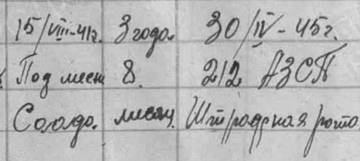 15/VIII-41г. 3 года. 30/IV-45г.
Под месж 8. 212 АЗСП
Солдо. месяц. Штрафная рота